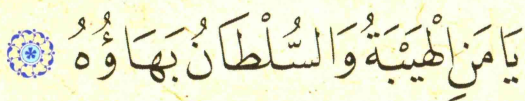 يَا مَنِ الْهَيْبَةُ وَالسُّلْطَانُ بَهَاؤُهُ